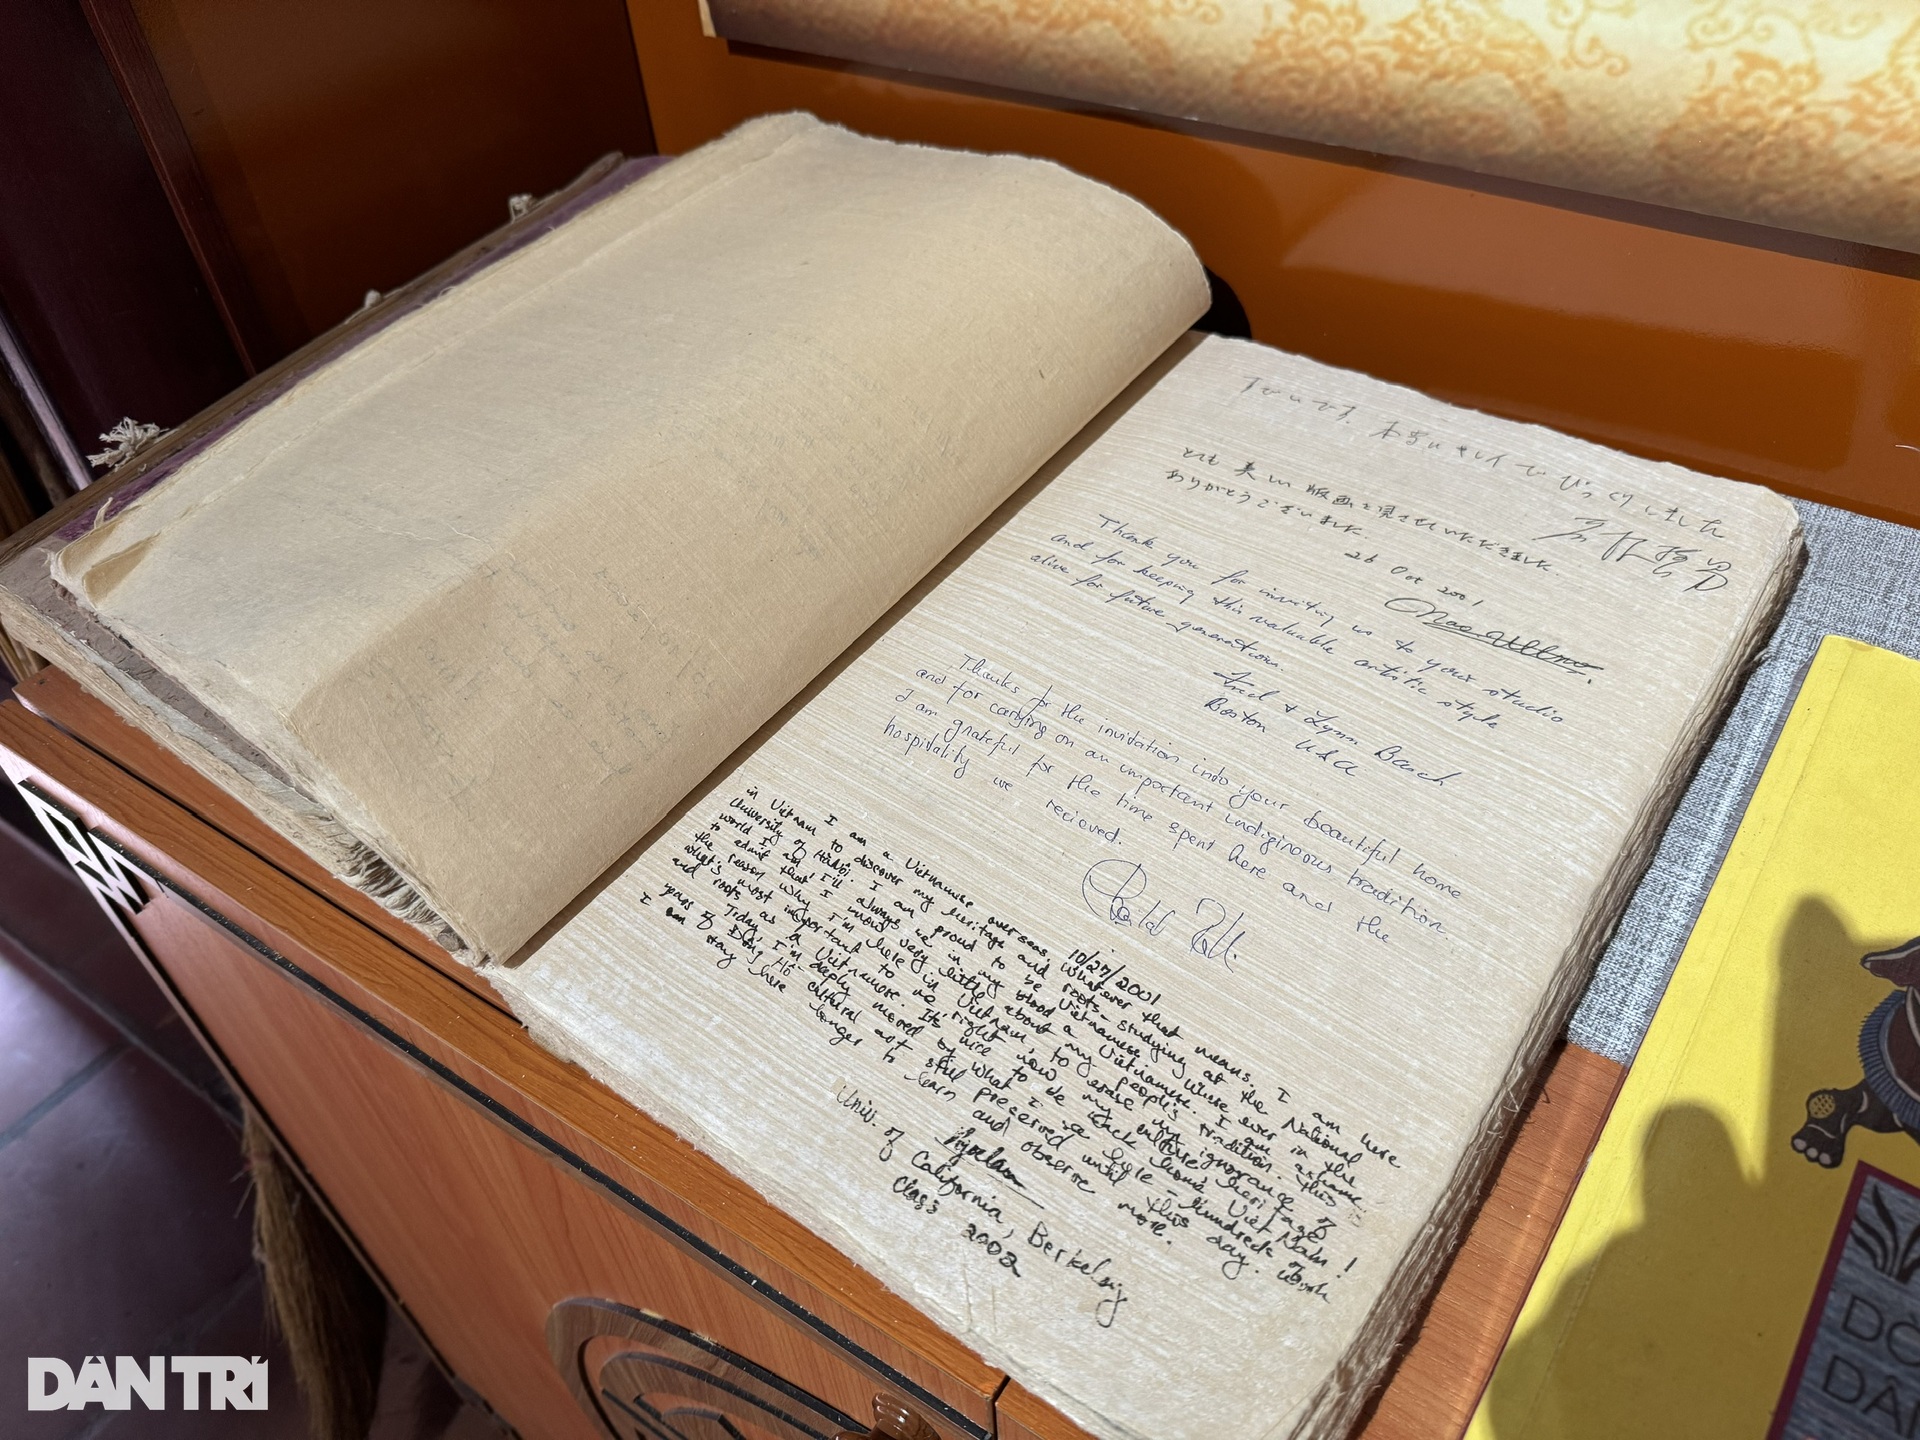 すごいです。本当にキレイでびっくりしました
とても美しい版画を見せていただきました。
ありがとうございました。
26 Oct 2001
Thank you for inviting us to your studio
and for keeping this valuable artistic style
alive for future generations.
Fred & Lynn
Boston USA
Thanks for the invitation into your beautiful home
and for carrying on an important indiginous tradition
I am grateful for the time spent here and the
hospitality we recieved.
10/27/2001
I am a Vietnamese overseas. Whatever that means. I am here
in Vietnam to discover my heritage and roots - studying at the National
University of Hànội. I am proud to be Vietnamese. Where ever in the
world I am I'll always be in my blood a Vietnamese. I am ashame
to admit that I know very little about my people's tradition. This
the reason why I'm here in Vietnam, to erase my ignorance of
what's most important to me right now my culture heritage
and roots as a Vietnamese. It's nice to be back home Việt Nam!
Today, I'm deeply moved by what I see here - hundreds of
years of Đông Hồ cultural art still preserved until this day.
I can stay here longer to learn and observe more.
Univ. of California, Berkeley
Class 2002
DÂN TRÍ